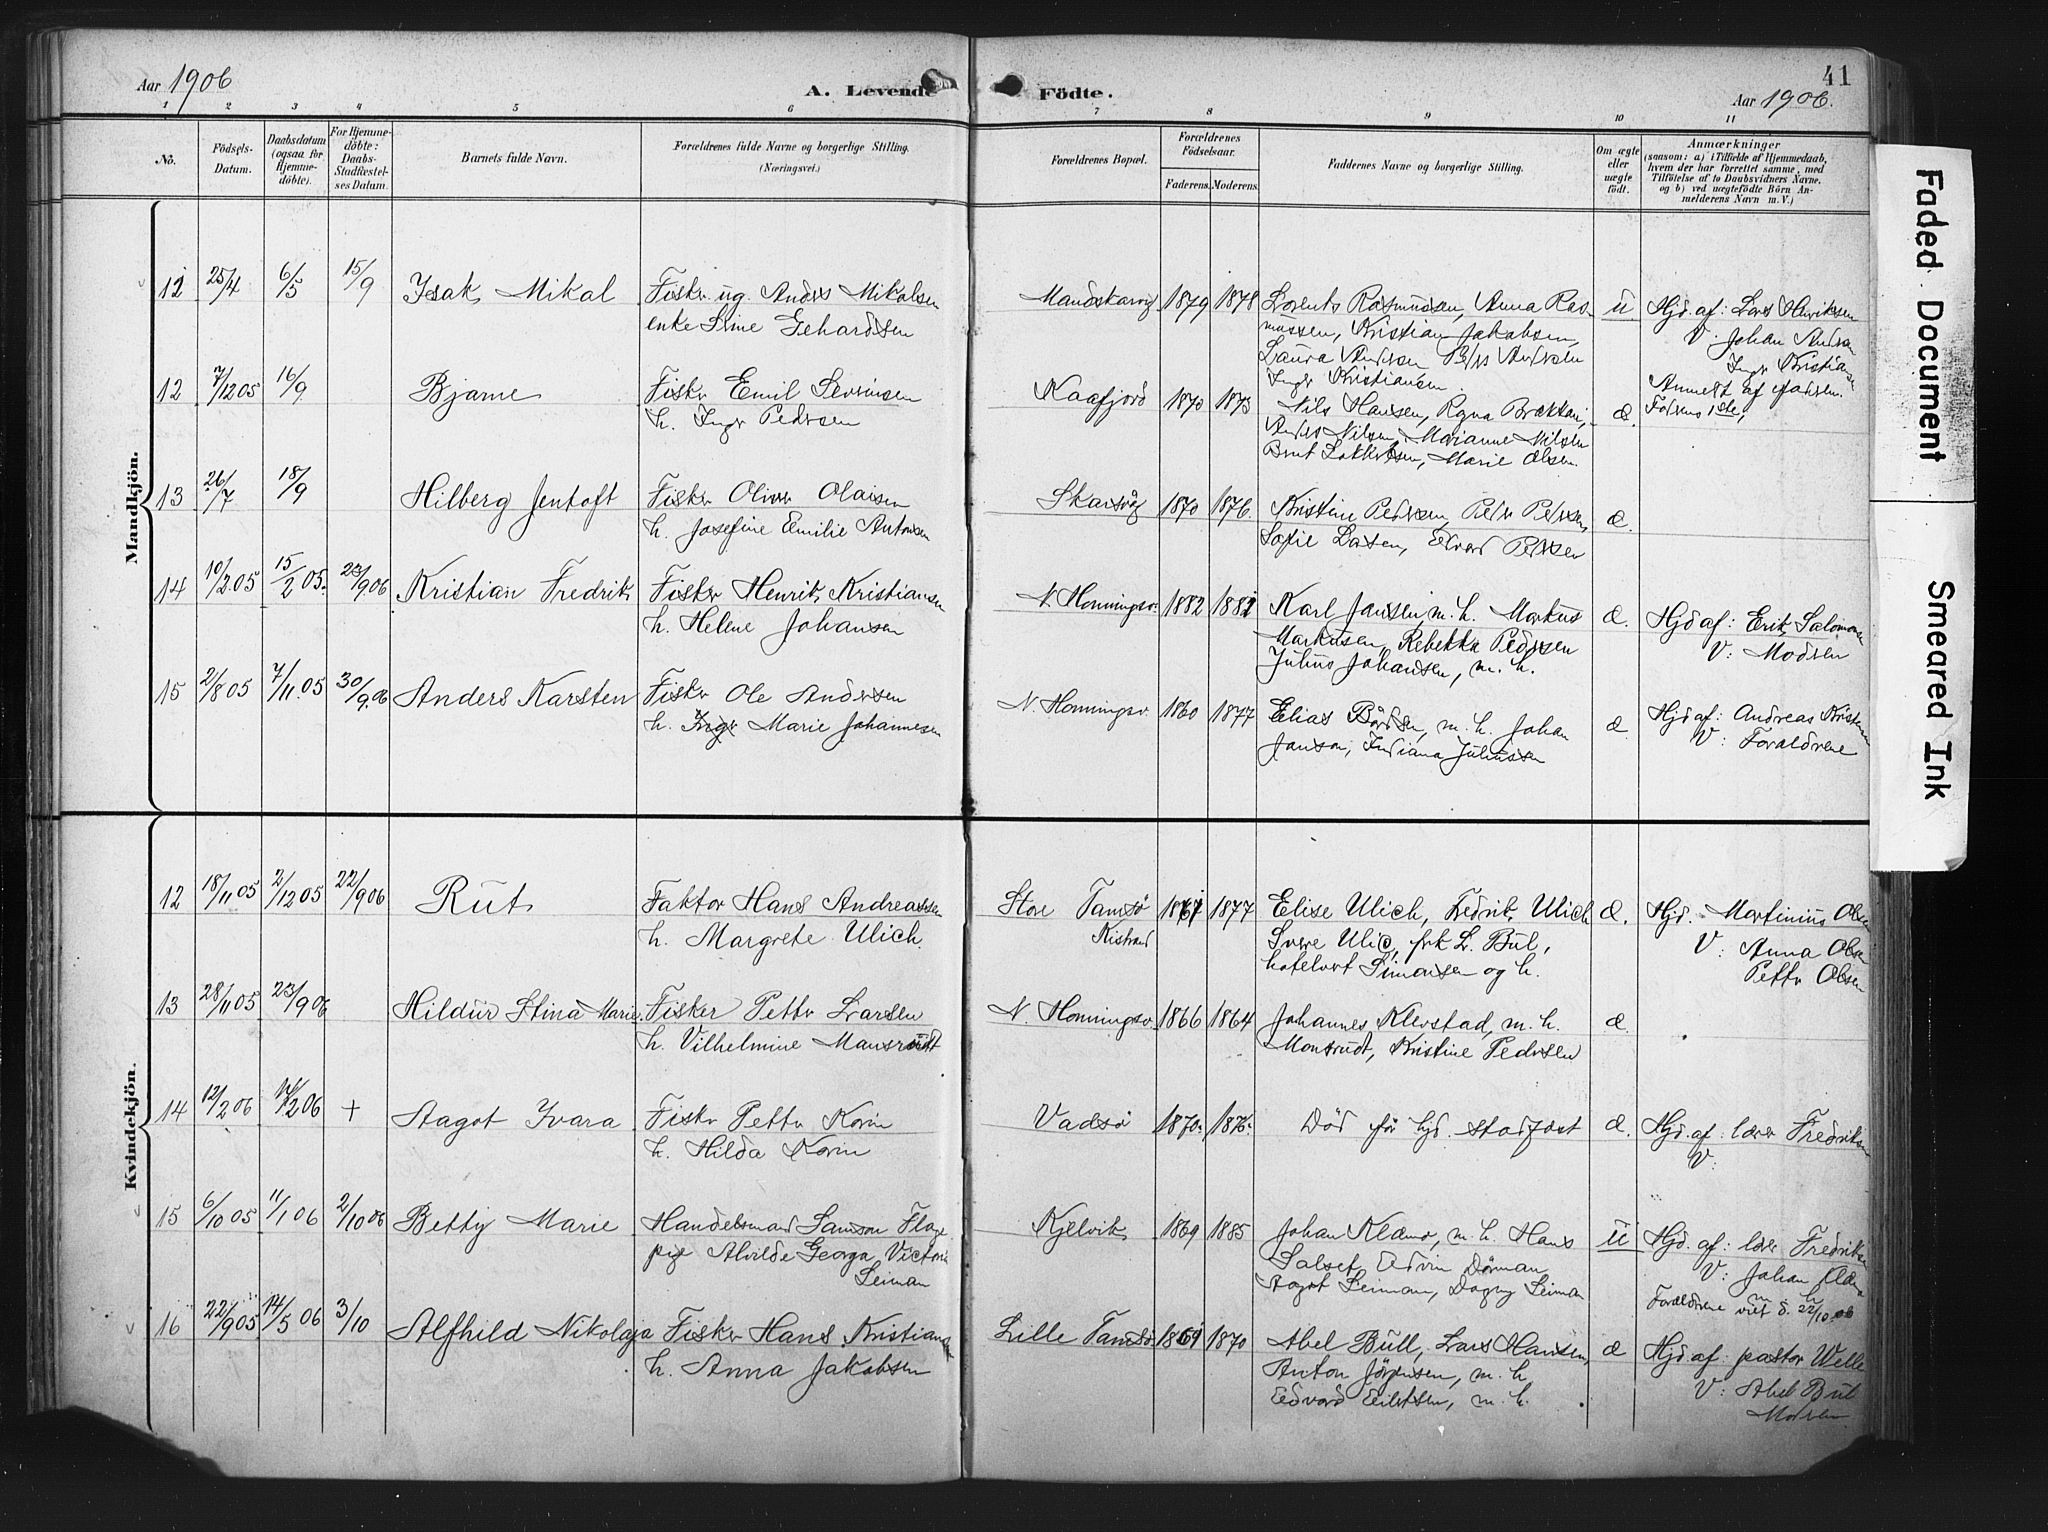 Aar 1906
A. Levende Födte.
41
Aar 1906.
1 2 3 4 5 6 7 8 9 10 11
No.
Födsels-
Datum.
Daabsdatum
(ogsaa for
Hjemme-
döbte).
For Hjemme-
döbte:
Daabs-
Stadfæstel-
ses Datum.
Barnets fulde Navn.
Forældrenes fulde Navne og borgerlige Stilling.
(Næringsvei.)
Forældrenes Bopæl.
Forældrenes
Födselsaar.
Faderens. Moderens.
Faddernes Navne og borgerlige Stilling.
Om ægte
eller
uægte
födt.
Anmærkninger
(saasom: a) i Tilfælde af Hjemmedaab,
hvem der har forrettet samme, med
Tilföielse af to Daabsvidners Navne.
og b) ved uægtefödte Börn An-
melderens Navn m. V.)
Mandkjön.
12 25/4 6/5 15/9 Isak Mikal Fisker ug. Anders Mikalsen
enke Line Gehardsen
Mandskarvig 1879 1878 Lorents Rasmussen, Anna Ras-
mussen, Kristian Jakobsen,
Laura Andersen Peder Andersen
Inger Kristiansen.
u Hjd. af: Lars Henriksen
V: Johan Andersen
Inger Kristiansen
Anmeldt af faderen.
12 7/12 05 16/9 Bjarne Fisker Emil Severinsen
h. Inger Pedersen
Kaafjord 1870 1873 Nils Hansen, Ragna Brækkan,
Anders Nilsen, Marianne Nilsen
Bernt Lokkertsen, Marie Olsen.
æ. Foldens 1ste,
13 26/7 18/9 Hilberg Jentoft Fisker Oliver Olaisen
h. Josefine Emilie Antonsen
Skarsvåg 1870 1876. Kristine Pedersen, Peder Pedersen,
Sofie Larsen, Edvard Pedersen
æ.
14 10/2 05 15/2 05. 23/9 06 Kristian Fredrik Fisker Henrik Kristiansen
h. Helene Johansen
N. Honningsv. 1882 1881 Karl Jansen, m. h. Markus
Markusen, Rebekka Pedersen
Julius Johansen, m. h.
æ. Hjd af: Erik Salomonsen
V: Moderen
15 2/8 05 7/11 05 30/9 06 Anders Karsten Fisker Ole Andersen
h. Inger Marie Johannesen
N. Honningsv. 1860 1877 Elias Bårdsen, m. h. Johan
Janson, Indiana Juliussen
æ. Hjd af: Andreas Kristensen
V: Forældrene
Kvindekjön.
12 18/11 05 2/12 05 22/9 06 Rut Faktor Hans Andreassen
h. Margrete Ulich.
Store Tamsö
Kistrand
1867 1877 Elise Ulich, Fredrik Ulich
Svere Ulich, frk L. Bul,
hotelvert Simonsen og h.
æ. Hjd. Martinius Olsen
V: Anna Olsen
Petter Olsen
13 28/11 05 23/9 06 Hildur Stina Marie. Fisker Petter Larsen
h. Vilhelmine Mansrudt
N. Honningsv. 1866 1864 Johannes Klerstad, m. h.
Monsrudt, Kristine Pedersen
æ.
14 12/2 06 14/2 06 + Aagot Ivara Fisker Petter Korin
h. Hilda Korin
Vadsö 1870. 1876. Död för hjd. stadfæst æ. Hjd. af: lærer Fredriksen
V:
15 6/10 05 11/1 06 2/10 06 Betty Marie Handelsmand Samson Flage
pige Alvilde Georga Victoria
Leiman
Kjelvik 1869 1885 Johan Klemo, m. h. Hans
Salset, Edvin Dörman
Aagot Leiman, Dagny Leiman
u Hjd. af: lærer Fredriksen
V: Johan Klemo
m. h.
Forældrene viet d. 22/10 06
16 22/9 05 14/5 06 3/10 Alfhild Nikolaja Fisker Hans Kristiansen
h. Anna Jakobsen
Lille Tamsö. 1869 1870 Abel Bull, Lars Hansen,
Anton Jörgensen, m. h.
Edvard Eilertsen, m. h.
æ Hjd af: pastor Welle
V: Abel Bul
Moderen.
Faded Document
Smeared Ink